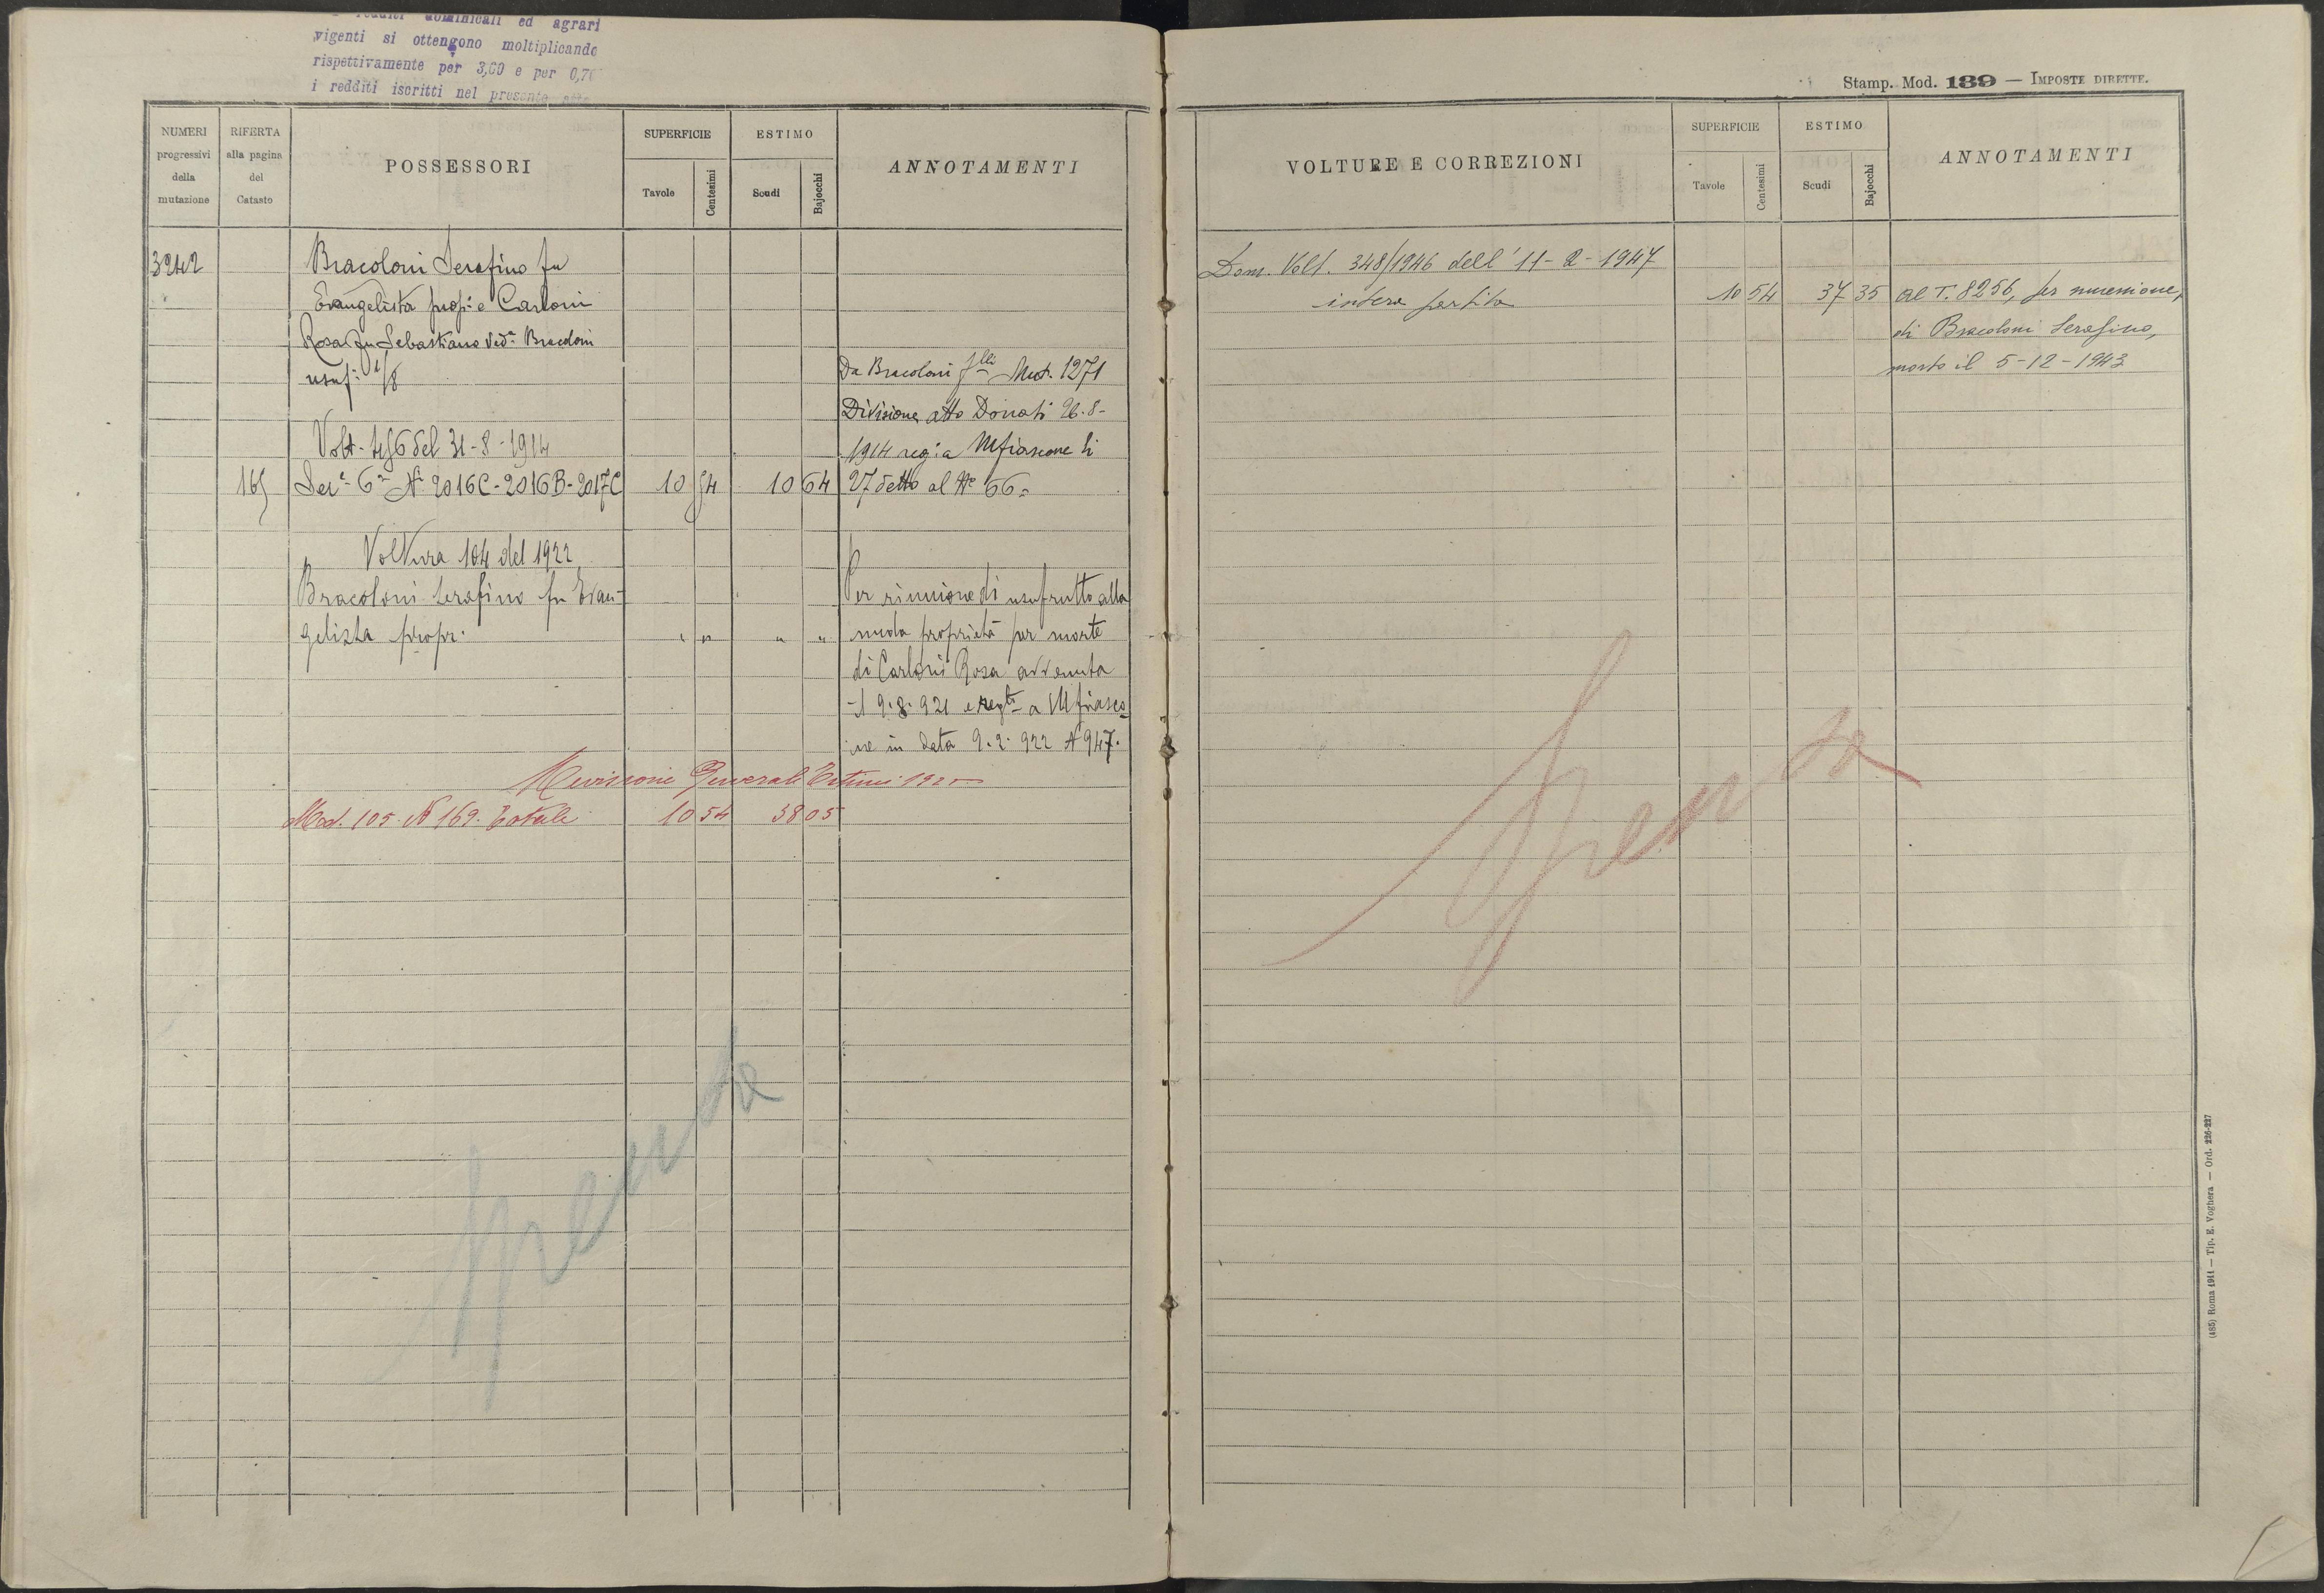 redditi dominicali ed agrari
vigenti si ottengono moltiplicando
rispettivamente per 3,60 e per 0,70
i redditi iscritti nel presente
NUMERI progressivi della mutazione
RIFERTA alla pagina del Catasto
POSSESSORI
SUPERFICIE
Tavole
Centesimi
ESTIMO
Scudi
Bajocchi
ANNOTAMENTI
3242
Bracoloni Serafino fu
Evangelista prop: e Carloni
Rosa fu Sebastiano Ved.a Bracoloni
usuf: 1/8
Da Bracoloni f.lli Mut. 1271
Divisione atto Donati 26-8-
1914 reg: a Mfiascone li
27 detto al N° 66=
Volt. del 31-8-1914
165 Sez.e 6.a N.i 2016C-2016B-2017C 10 54 10 64
Voltura 104 del 1922
Bracoloni Serafino fu Evan-
gelista propr: " " " "
Per riunione di usufrutto alla
nuda proprietà per morte
di Carloni Rosa avvenuta
il 9.8.921 e reg.ta a Mfiasco
ne in data 9.2.922 N 947.
Revisione Generale Estimi 192
Mod. 105 N 169. Totale 10 54 38 05
Spenta
Stamp. Mod. 189 — IMPOSTE DIRETTE.
VOLTURE E CORREZIONI
SUPERFICIE
Tavole
Centesimi
ESTIMO
Scudi
Bajocchi
ANNOTAMENTI
Dom. Volt. 348/1946 dell' 11-2-1947
intera partita 10 54 37 35
al T. 8256, per successione,
di Bracoloni Serafino,
morto il 5-12-1943
Spenta
(485) Roma 1911 — Tip. E. Voghera — Ord. 226-227